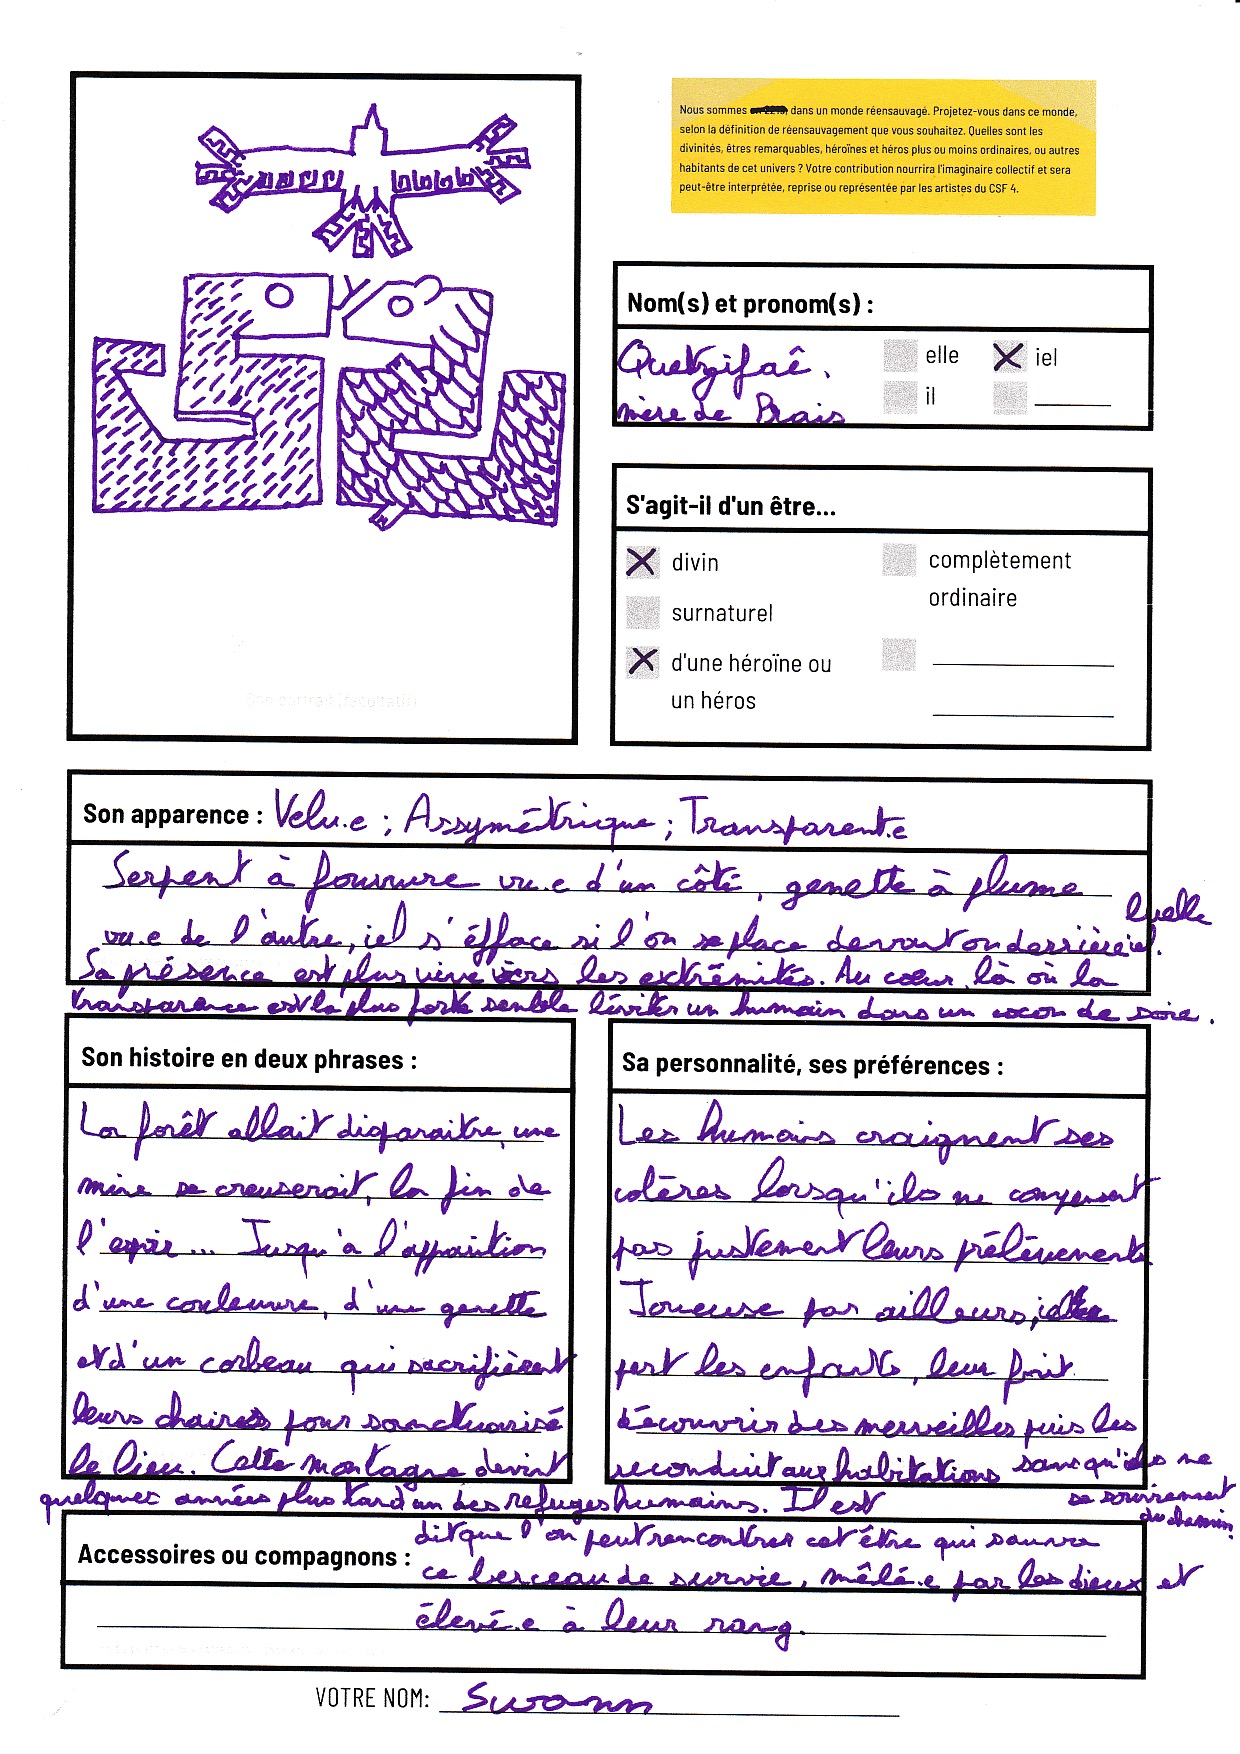 Nous sommes dans un monde réensauvagé. Projetez-vous dans ce monde,
selon la définition de réensauvagement que vous souhaitez. Quelles sont les
divinités, êtres remarquables, héroïnes et héros plus ou moins ordinaires, ou autres
habitants de cet univers ? Votre contribution nourrira l'imaginaire collectif et sera
peut-être interprétée, reprise ou représentée par les artistes du CSF 4.
Son portrait (facultatif)
Nom(s) et pronom(s) :
Quetzifaê.
mère de Brais
elle
iel
il
S'agit-il d'un être...
divin
complètement
ordinaire
surnaturel
d'une héroïne ou
un héros
Son apparence : Velu.e ; Assymétrique ; Transparent.e
Serpent à fourrure vu.e d'un côté, genette à plume
vu.e de l'autre, iel s'éfface si l'on se place devant ou derrière
Sa présence est plus vive vers les extrêmités. Au cœur, là où la
transparence est la plus forte semble léviter un humain dans un cocon de soie.
Son histoire en deux phrases :
La forêt allait disparaitre, une
mine se creuserait, la fin de
l'espoir... Jusqu'à l'apparition
d'une couleuvre, d'une genette
et d'un corbeau qui sacrifièrent
leurs chaires pour sanctuarisé
le lieu. Cette montagne devint
quelques années plus tard un des refuges humains. Il est
dit que l'on peut rencontrer cet être qui sauva
ce berceau de survie, mêlé.e par les dieux et
élevé.e à leur rang.
Sa personnalité, ses préférences :
Les humains craignent ses
colères lorsqu'ils ne compensent
pas justement leurs prélèvements.
Joueuse par ailleurs,
perd les enfants, leur fait
découvrir des merveilles puis les
reconduit aux habitations sans qu'ils ne
se souviennent
du chemin.
Accessoires ou compagnons :
VOTRE NOM: Swann